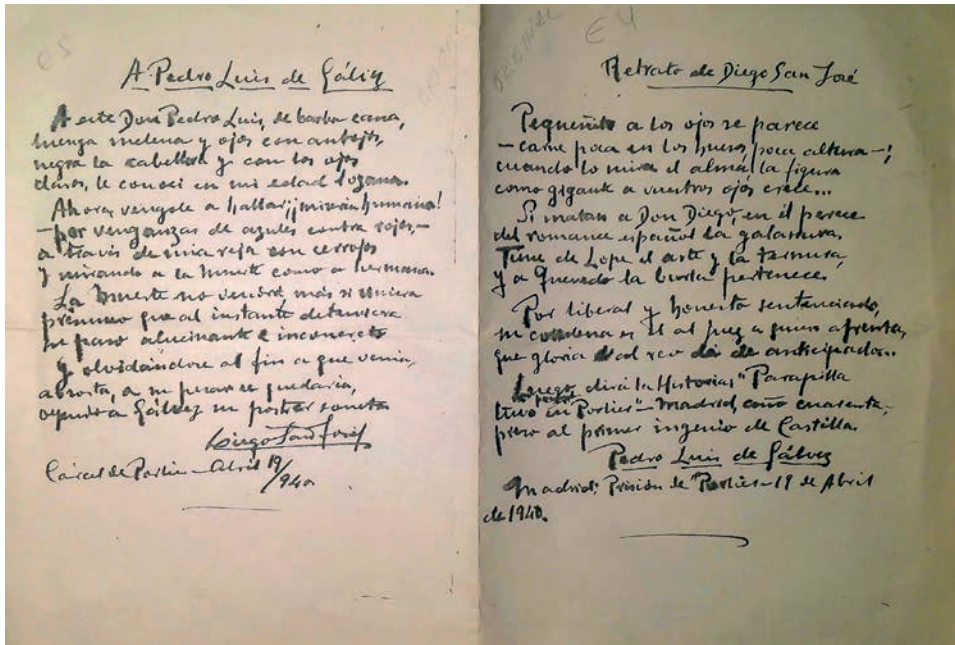 A Pedro Luis de Gálvez
A este Don Pedro Luis, de barba cana,
luenga melena y ojos con antojos,
negra la cabellera y con los ojos
claros, le conocí en mi edad lozana.
Ahora, véngole a hallar ¡miseria humana!
—por venganzas de azules contra rojos,—
a través de una reja con cerrojos
y mirando a la muerte como a hermana.
La muerte no vendrá, más si viniera
presumo que al instante detuviera
su paso alucinante e inconcreto
y olvidándose al fin a que venía,
absorta, a su pesar se quedaría,
oyendo a Gálvez su postrer soneto
Diego San José
Cárcel de Porlier—Abril 19/940
Retrato de Diego San José
Pequeñito a los ojos se parece
—carne poca en los huesos, poca altura—;
cuando lo mira el alma, la figura
como gigante a vuestros ojos crece...
Si matan a Don Diego, en él perece
del romance español la galanura.
Tiene de Lope el arte y la ternura,
y a Quevedo la burla pertenece.
Por liberal y honesto sentenciado,
su condena es al juez a quien afrenta,
que gloria al reo da de anticipado...
Luego, dirá la Historia: "Parapilla
tuvo en Porlier"—Madrid, año cuarenta—
preso al primer ingenio de Castilla.
Pedro Luis de Gálvez
Madrid; Prisión de "Porlier"—19 de Abril
de 1940.